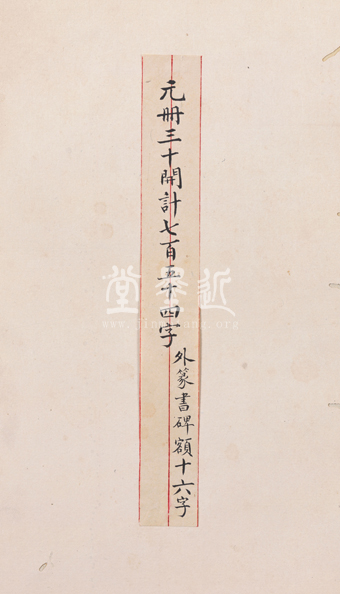 元册三十開計七百五十四字
外篆書碑額十六字
近墨堂
www.jinmotang.org